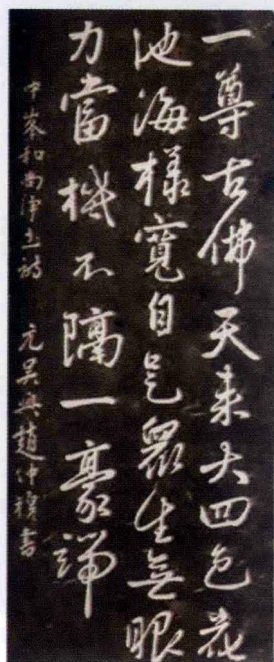 一尊古佛天来大四色花
池海樣寬自是眾生無眼
力當機不隔一毫端
中峯和尚淨土詩　元吴興趙仲穆書